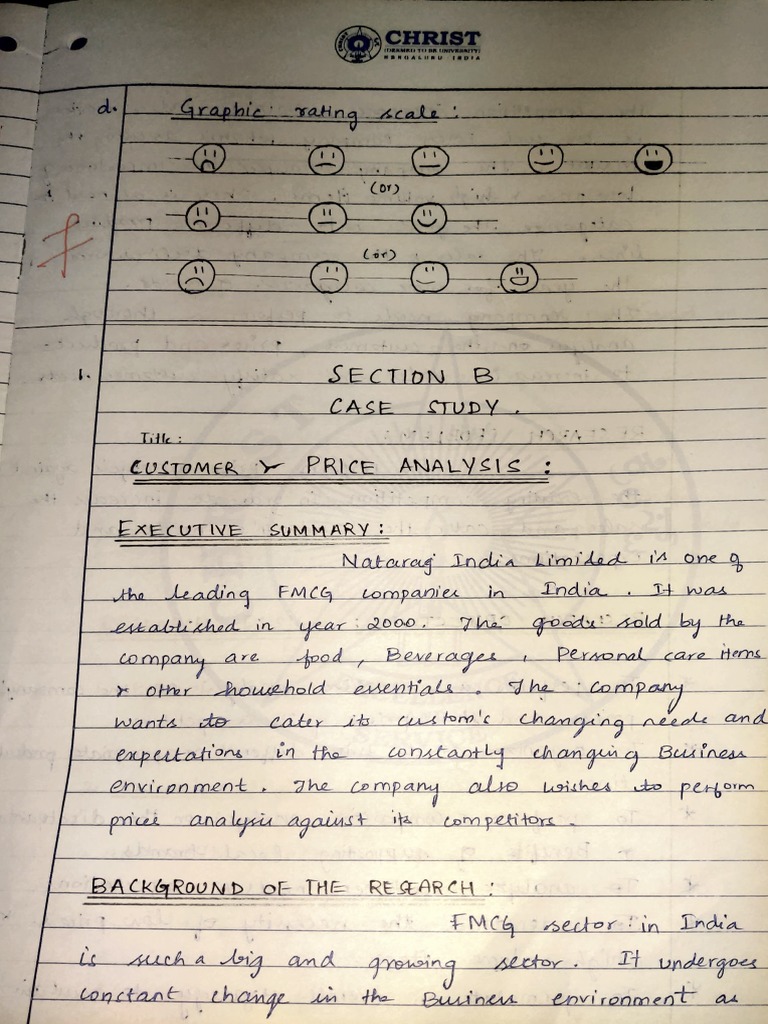 CHRIST
(DEEMED TO BE UNIVERSITY)
BENGALURU INDIA
d. Graphic rating scale :
(or)
(or)
1. SECTION B
CASE STUDY.
Title :
CUSTOMER & PRICE ANALYSIS :
EXECUTIVE SUMMARY :
Nataraj India Limided is one of
the leading FMCG companies in India. It was
established in year 2000. The goods sold by the
company are food, Beverages, Personal care items
& other household essentials. The company
wants to cater its custom's changing needs and
expectations in the constantly changing Business
environment. The company also wishes to perform
price analysis against its competitors.
BACKGROUND OF THE RESEARCH :
FMCG sector in India
is such a big and growing sector. It undergoes
constant change in the Business environment as